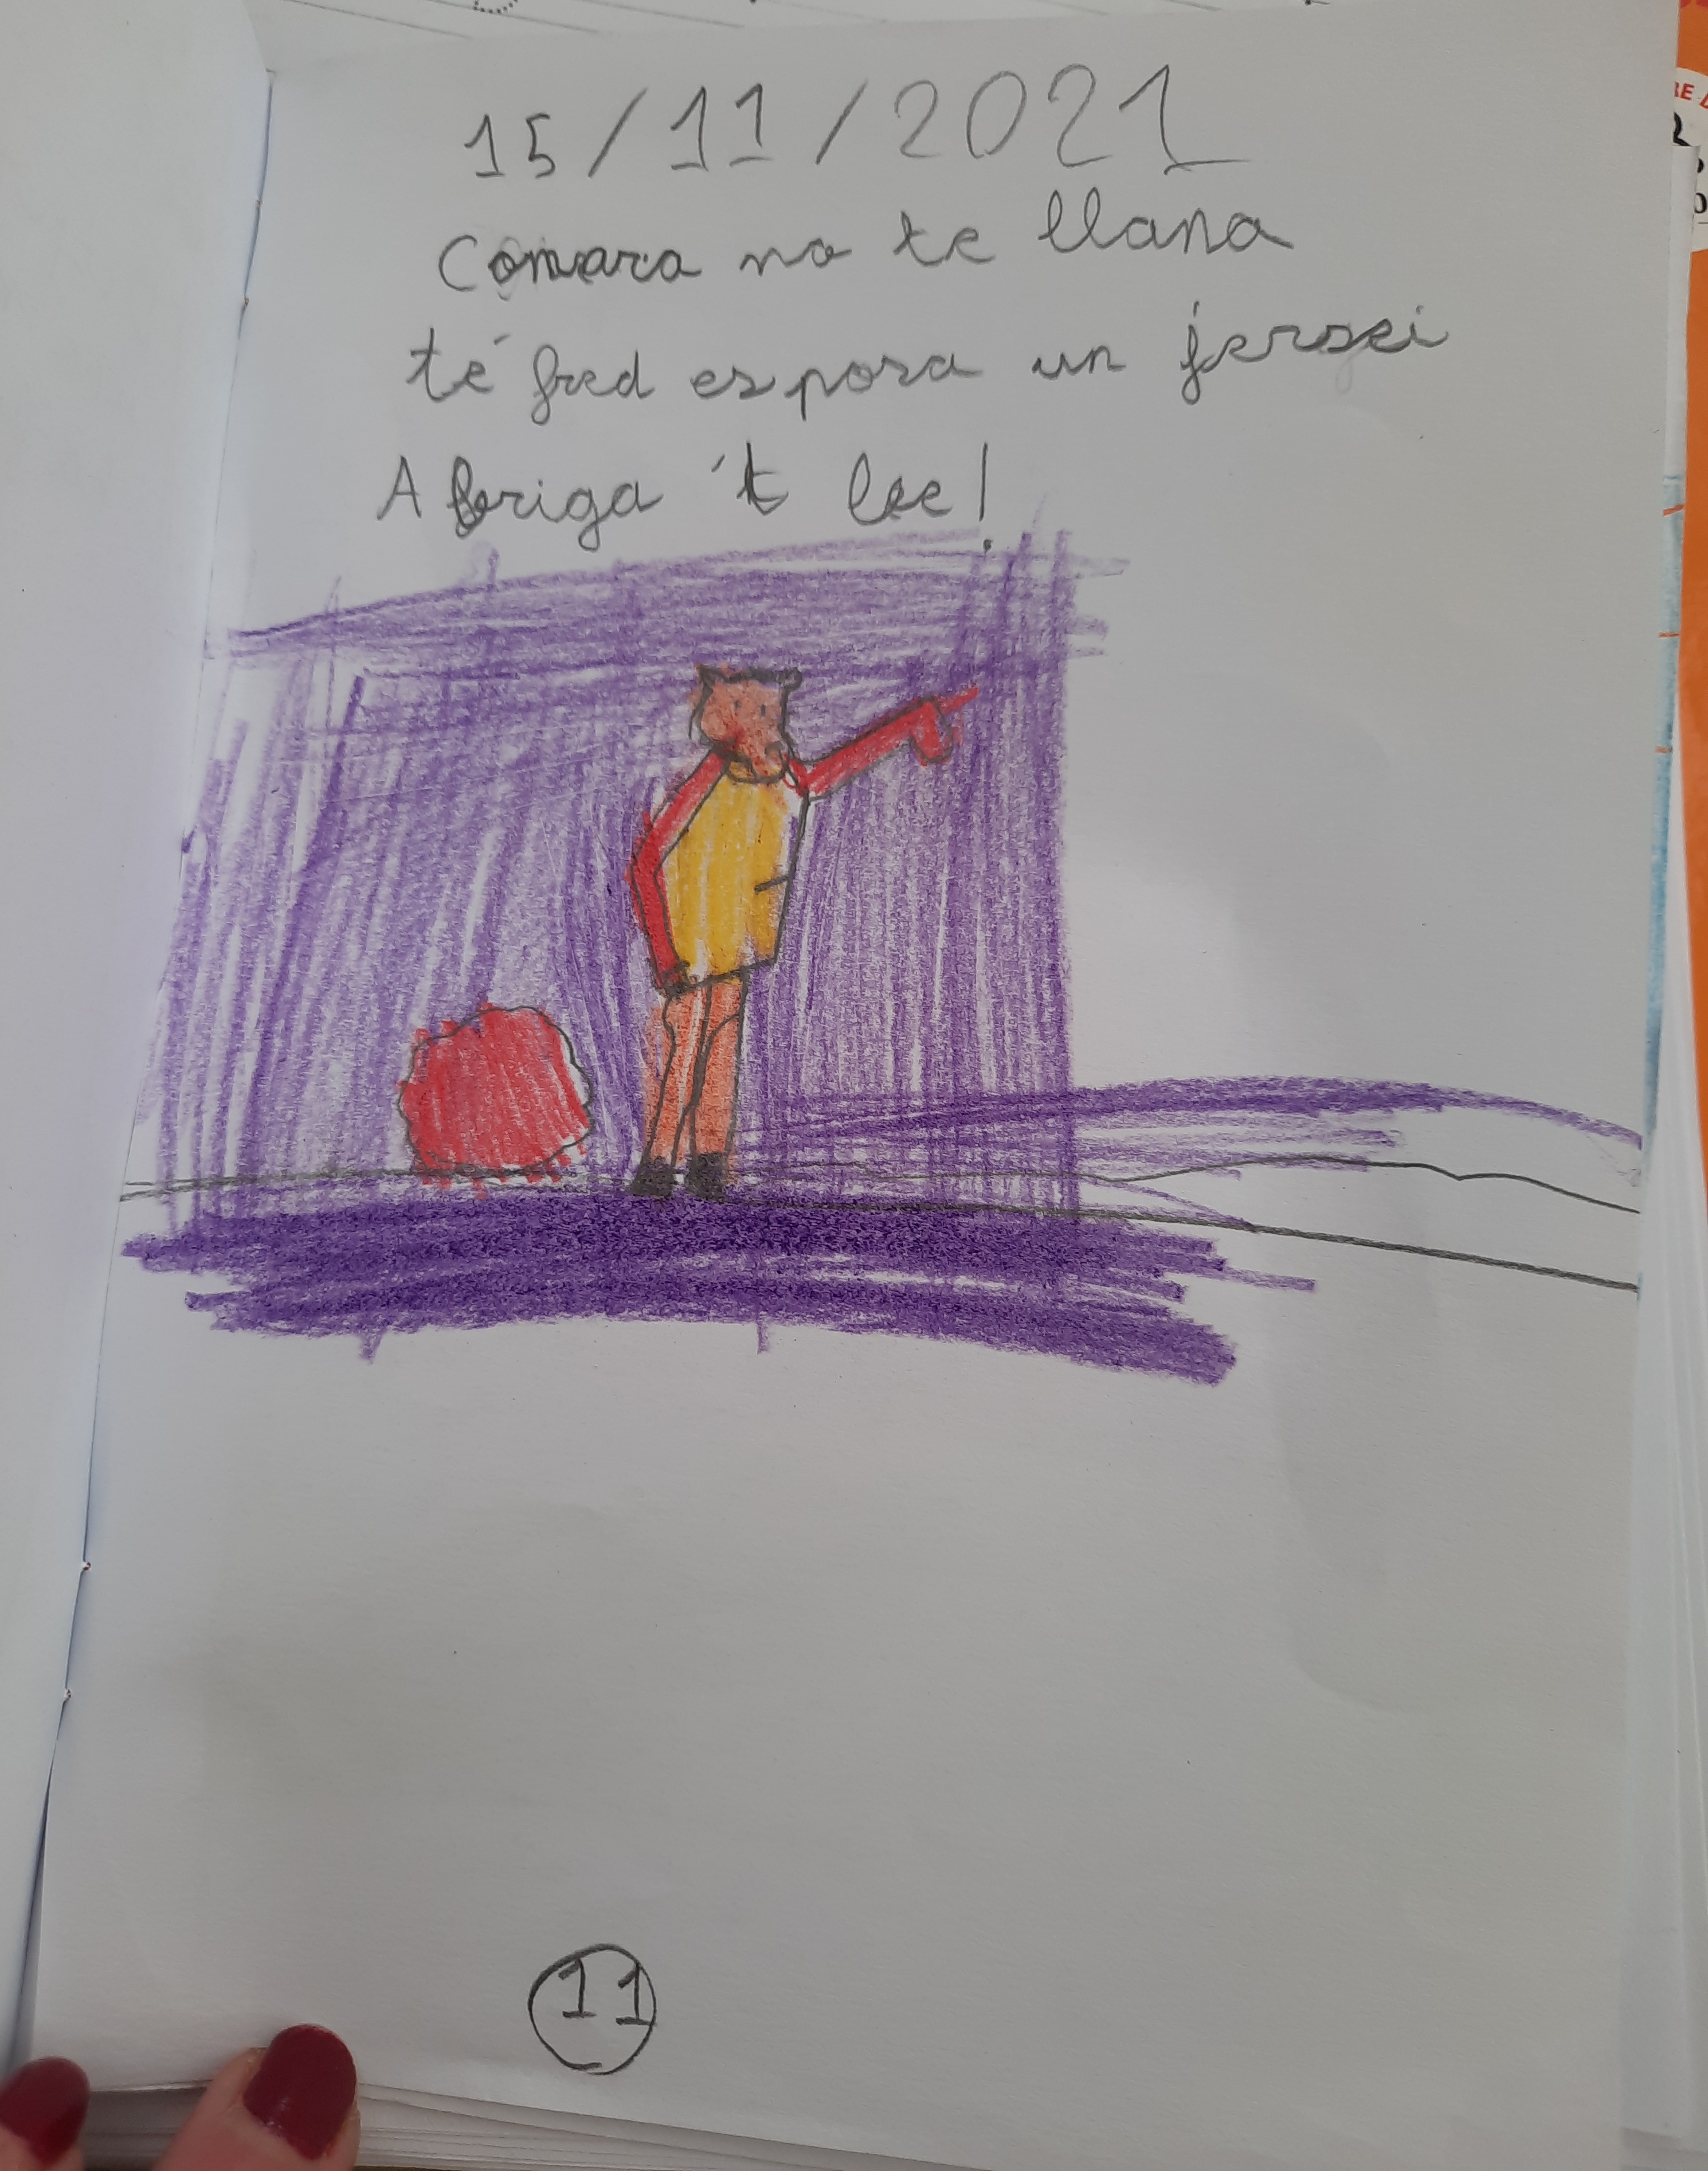 15/11/2021
Comara no te llana
té fred esposa un jersei
Abriga 't lee!
11